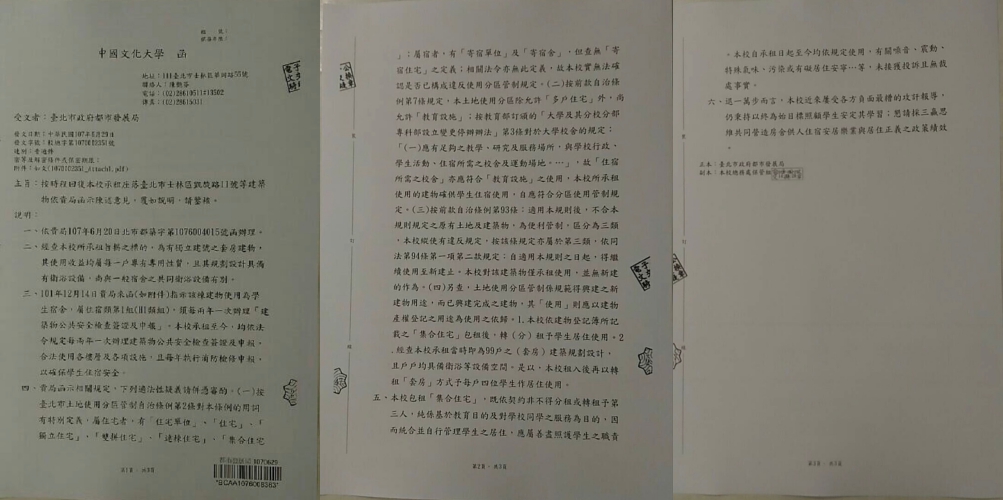 檔　號：
保存年限：
中國文化大學　函
地址：111臺北市士林區華岡路55號
電話：(02)28610511#13502
受文者：臺北市政府都市發展局
發文日期：中華民國107年6月29日
速別：普通件
密等及解密條件或保密期限：
主旨：按時程回復本校承租座落臺北市士林區凱旋路11號等建築
物依貴局函示陳述意見，覆如說明，請鑒核。
說明：
一、依貴局107年6月20日北市都築字第1076004015號函辦理。
二、經查本校所承租旨揭之標的，為有獨立建號之套房建物，
其使用收益均屬每一戶專有專用性質，且其規劃設計具備
有衛浴設備，而與一般宿舍之共同衛浴設備有別。
三、101年12月14日貴局來函(如附件)指示該棟建物使用為學
生宿舍，屬住宿類第1組(H1類組)，須每兩年一次辦理「建
築物公共安全檢查簽證及申報」，本校承租至今，均依法
令規定每兩年一次辦理建築物公共安全檢查簽證及申報，
合法使用各樓層及各項設施，且每年執行消防檢修申報，
以確保學生住宿安全。
四、貴局函示相關規定，下列適法性疑義請併憑審酌，(一)按
臺北市土地使用分區管制自治條例第2條對本條例的用詞
有特別定義，屬住宅者，有「住宅單位」、「住宅」、「
獨立住宅」、「雙拼住宅」、「連棟住宅」、「集合住宅
第1頁，共3頁
」；屬宿者，有「寄宿單位」及「寄宿舍」，但查無「寄
宿住宅」之定義；相關法令亦無此定義，故本校實無法確
認是否已構成違反使用分區管制規定。(二)按前款自治條
例第7條規定，本土地使用分區除允許「多戶住宅」外，尚
允許「教育設施」；按教育部訂頒的「大學及其分校分部
專科部設立變更停辦辦法」第3條對於大學校舍的規定：
「(一)應有足夠之教學、研究及服務場所，與學校行政、
學生活動、住宿所需之校舍及運動場地，…」，故「住宿
所需之校舍」亦應符合「教育設施」之使用，本校所承租
使用的建物確供學生住宿使用，自應符合分區使用管制規
定。(三)按前款自治條例第93條：適用本規則後，不合本
規則規定之原有土地及建築物，為便利管制，區分為三類
，本校縱使有違反規定，按該條規定亦屬於第三類，依同
法第94條第一項第二款規定：自適用本規則之日起，得繼
續使用至新建止。本校對該建築物僅承租使用，並無新建
的作為。(四)另查，土地使用分區管制係規範得興建之新
建物用途，而已興建完成之建物，其「使用」則應以建物
產權登記之用途為使用之依歸。1.本校依建物登記簿所記
載之「集合住宅」包租後，轉（分）租予學生居住使用。2
.經查本校承租當時即為99戶之（套房）建築規劃設計，
且戶戶均具備衛浴等設備空間，是以，本校租入後再以轉
租「套房」方式予每戶四位學生作居住使用。
五、本校包租「集合住宅」，既依契約非不得分租或轉租予第
三人，純係基於教育目的及對學校同學之服務為目的，因
而統合並自行管理學生之居住，應屬善盡照護學生之職責
第2頁，共3頁
。本校自承租日起至今均依規定使用，有關噪音、震動、
特殊氣味、污染或有礙居住安寧…等，未接獲投訴且無裁
處事實。
六、退一萬步而言，本校近來屢受各方負面嚴糟的攻訐報導，
仍秉持以終為始目標照顧學生安定其學習；懇請採三贏思
維共同營造房舍供人住宿安居樂業與居住正義之政策績效
。
正本：臺北市政府都市發展局
第3頁，共3頁